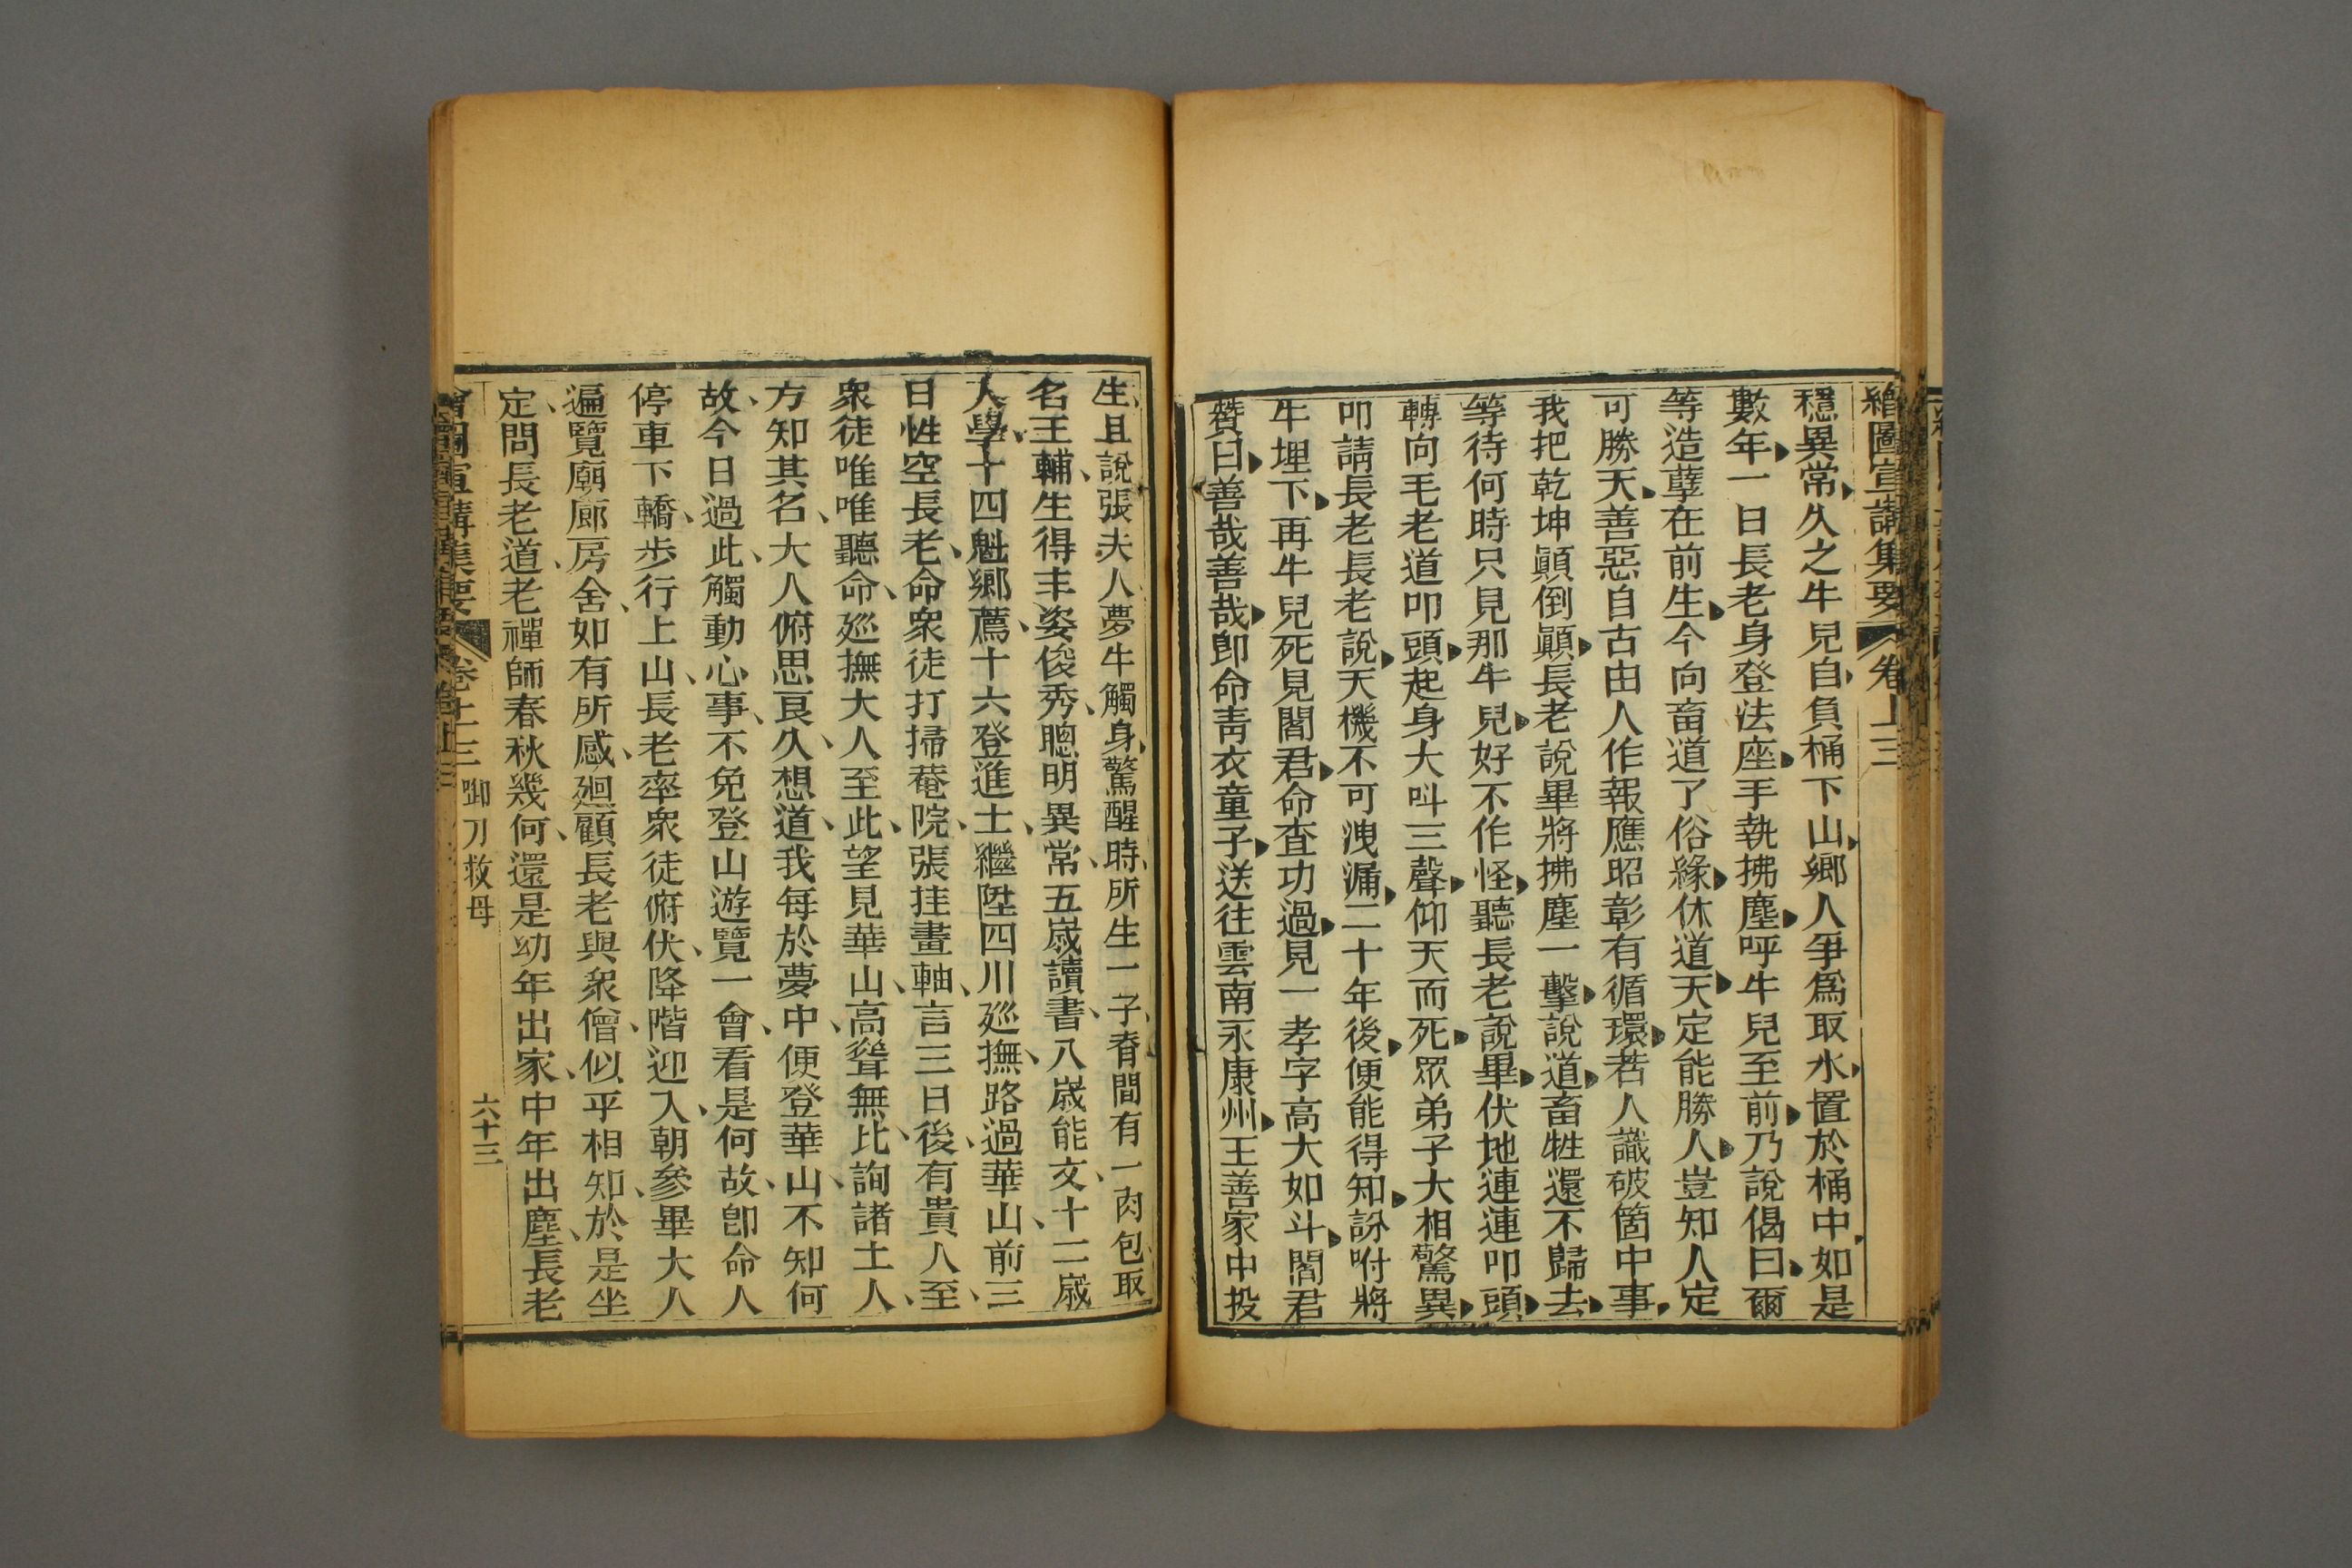 繪圖宣講集要 卷上三
穩異常久之牛兒自負桶下山鄉人爭為取水置於桶中如是
數年一日長老身登法座手執拂塵呼牛兒至前乃說偈曰爾
等造孽在前生今向畜道了俗緣休道天定能勝人豈知人定
可勝天善惡自古由人作報應昭彰有循環若人識破箇中事
我把乾坤顛倒顛長老說畢將拂塵一擊說道畜牲還不歸去
等待何時只見那牛兒好不作怪聽長老說畢伏地連連叩頭
轉向毛老道叩頭起身大呌三聲仰天而死眾弟子大相驚異
叩請長老長老說天機不可洩漏二十年後便能得知訜咐將
牛埋下再牛兒死見閻君命查功過見一孝字高大如斗閻君
贊曰善哉善哉卽命靑衣童子送往雲南永康州王善家中投
生且說張夫人夢牛觸身驚醒時所生一子脊間有一肉包取
名王輔生得丰姿俊秀聰明異常五嵗讀書八嵗能文十二嵗
入學十四魁鄉薦十六登進士繼陞四川廵撫路過華山前三
日性空長老命衆徒打掃菴院張挂畫軸言三日後有貴人至
衆徒唯唯聽命廵撫大人至此望見華山高聳無比詢諸土人
方知其名大人俯思良久想道我每於夢中便登華山不知何
故今日過此觸動心事不免登山遊覽一會看是何故卽命人
停車下轎步行上山長老率衆徒俯伏降階迎入朝參畢大人
遍覽廟廊房舍如有所感廻顧長老與衆僧似乎相知於是坐
定問長老道老禪師春秋幾何還是幼年出家中年出塵長老
會圖宣講集要 卷上三 啣刀救母 六十三